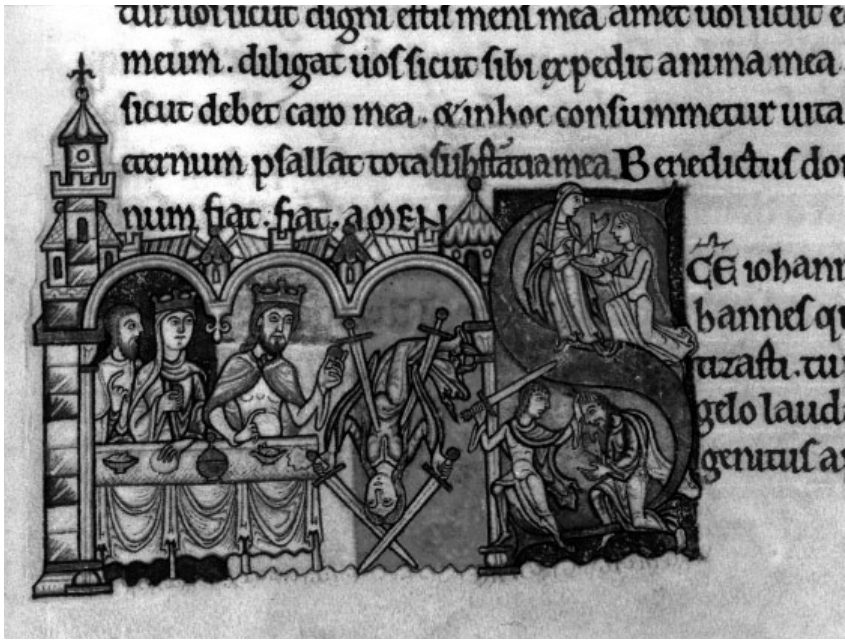 tur uos sicut digni estis meni mea. amet uos sicut e
meum. diligat uos sicut sibi expedit anima mea
sicut debet caro mea. & in hoc consummetur uita
eternum psallat tota substātia mea. Benedictus do
num fiat. fiat. AMEN
S
C̄E iohann
hannes qu
tizasti. tu
gelo lauda
genitus a